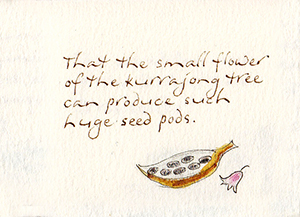 That the small flower
of the kurrajong tree
can produce such
huge seed pods.